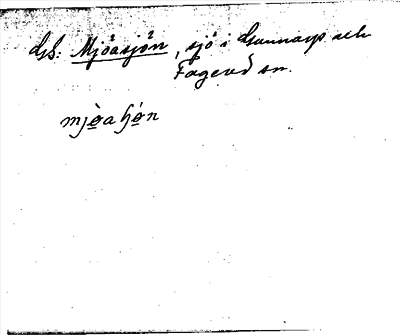 GS: Mjöasjön, sjö i Gunnarp och
Fagered sn.
mjòa ʃón